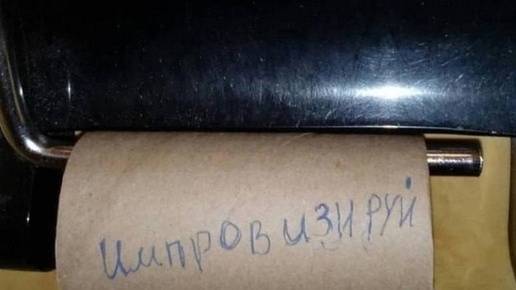 импровизируй